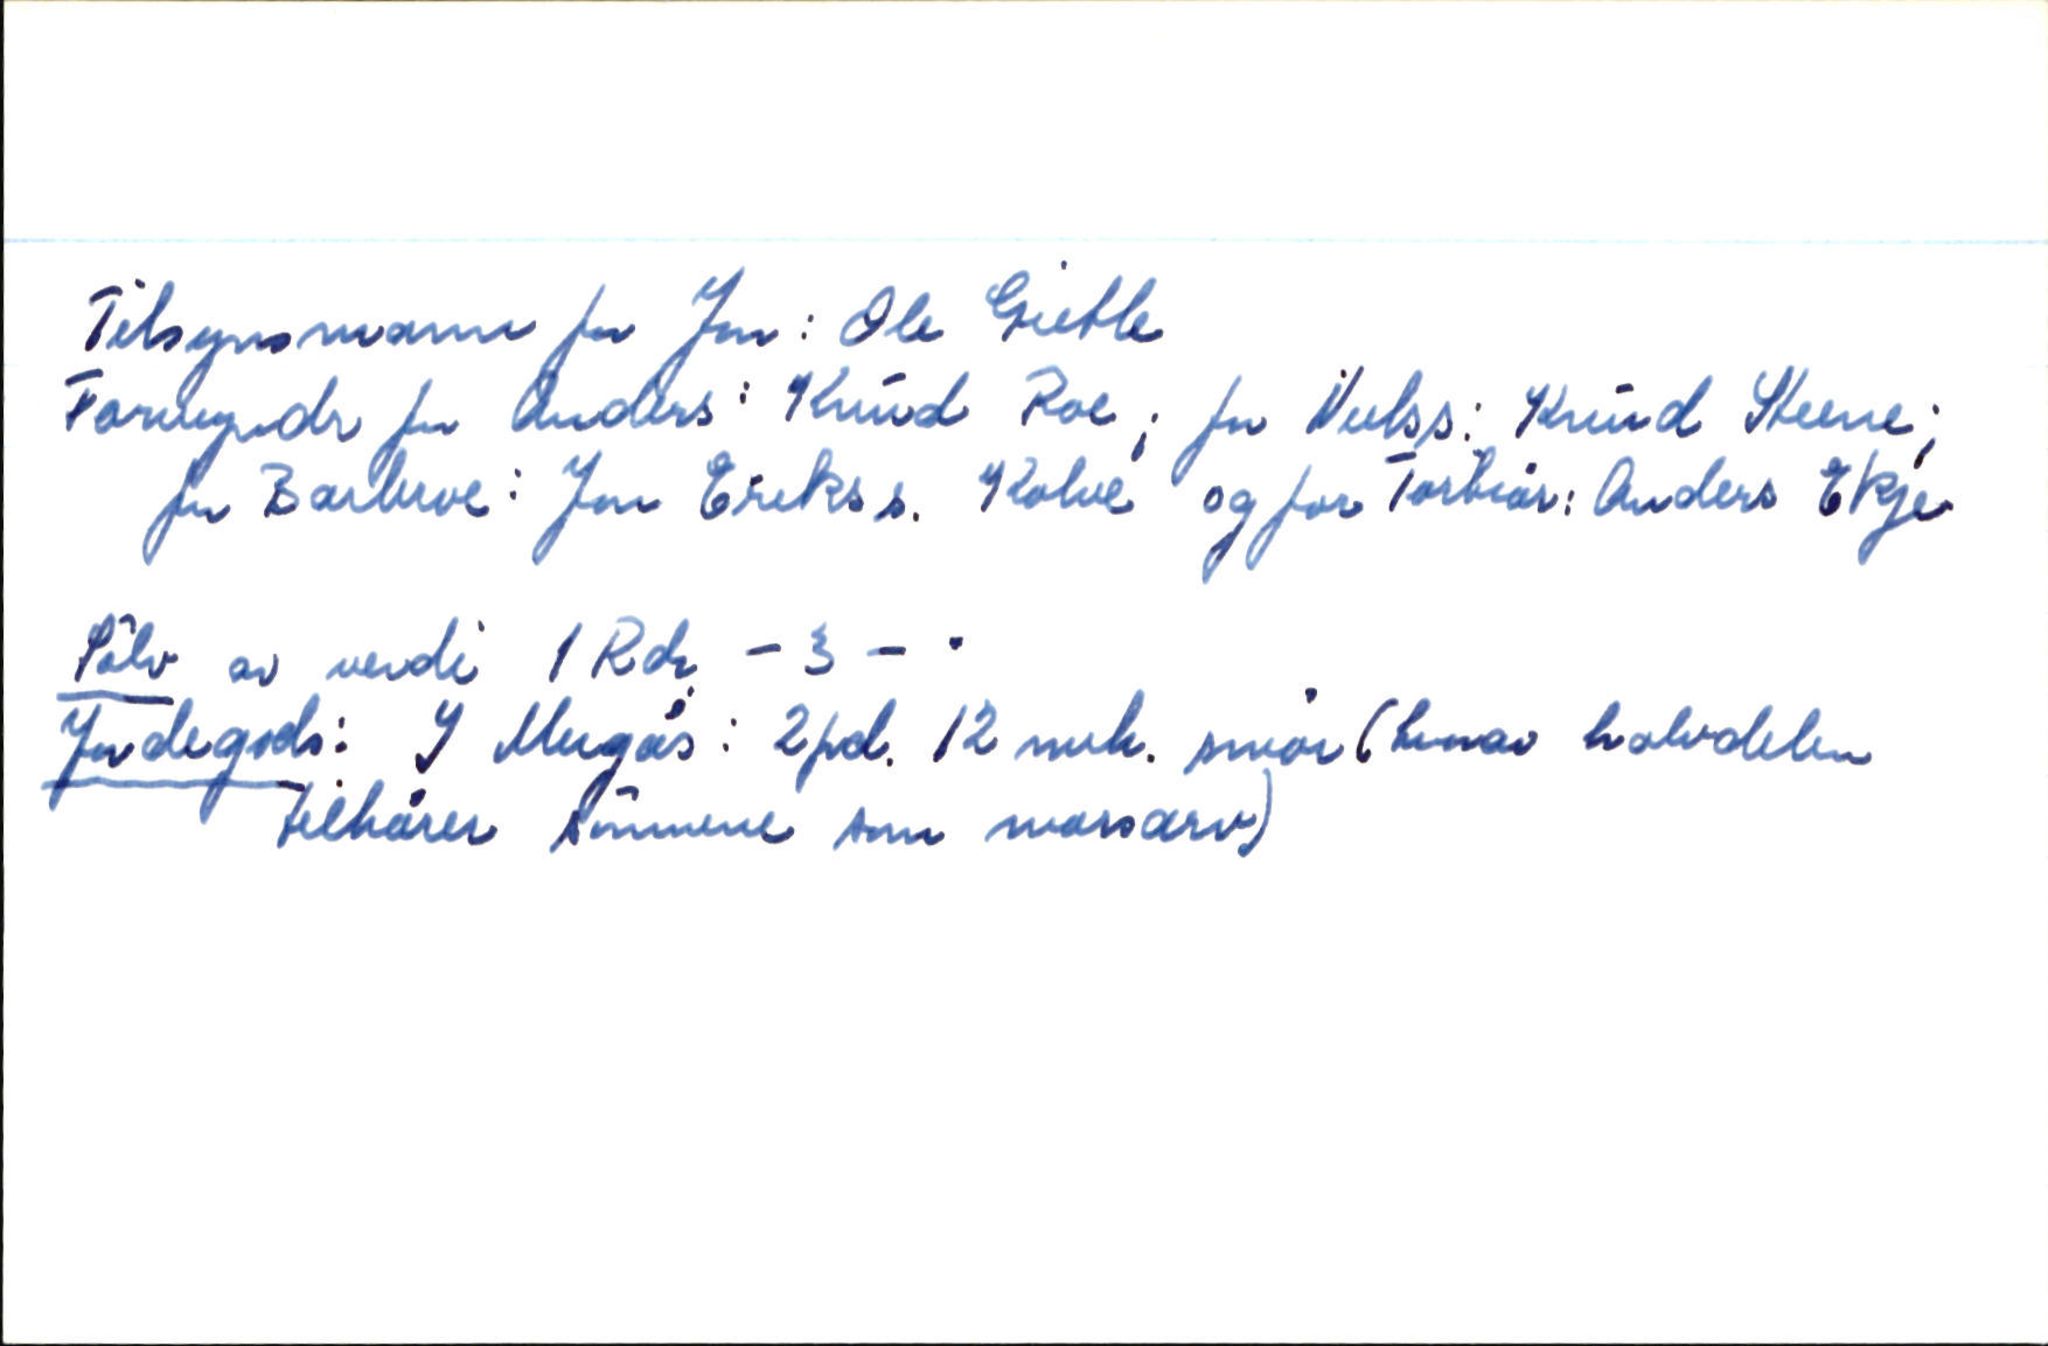 Tilsynsmann for Jon: Ole Gietle
Formyndr for Anders: Knud Roe; for Nielss: Knud Steene;
for Barbroe: Jon Erikss. Kolve og for Torbiör: Anders Ekje
Sölv av verdi 1 Rdr - 3 - .
Jordegods: I Mugås: 2 pd. 12 mrk. smör (hvorav halvdelen
tilhörer sönnene som morsarv)